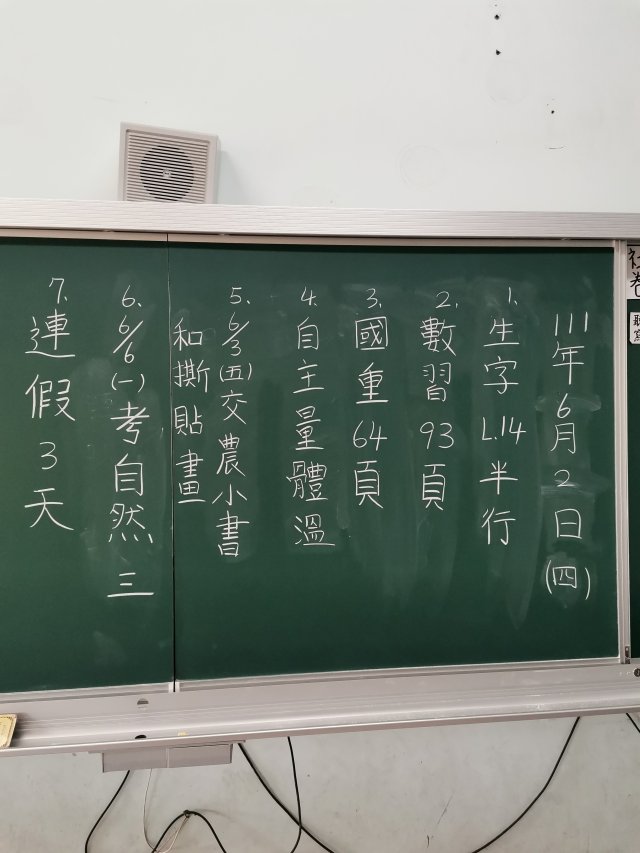 111年6月2日(四)
1.生字L.14半行
2.數習93頁
3.國重64頁
4.自主量體溫
5.6/3(五)交農小書
和撕貼畫
6.6/6(一)考自然三
7.連假3天
社卷
聽寫